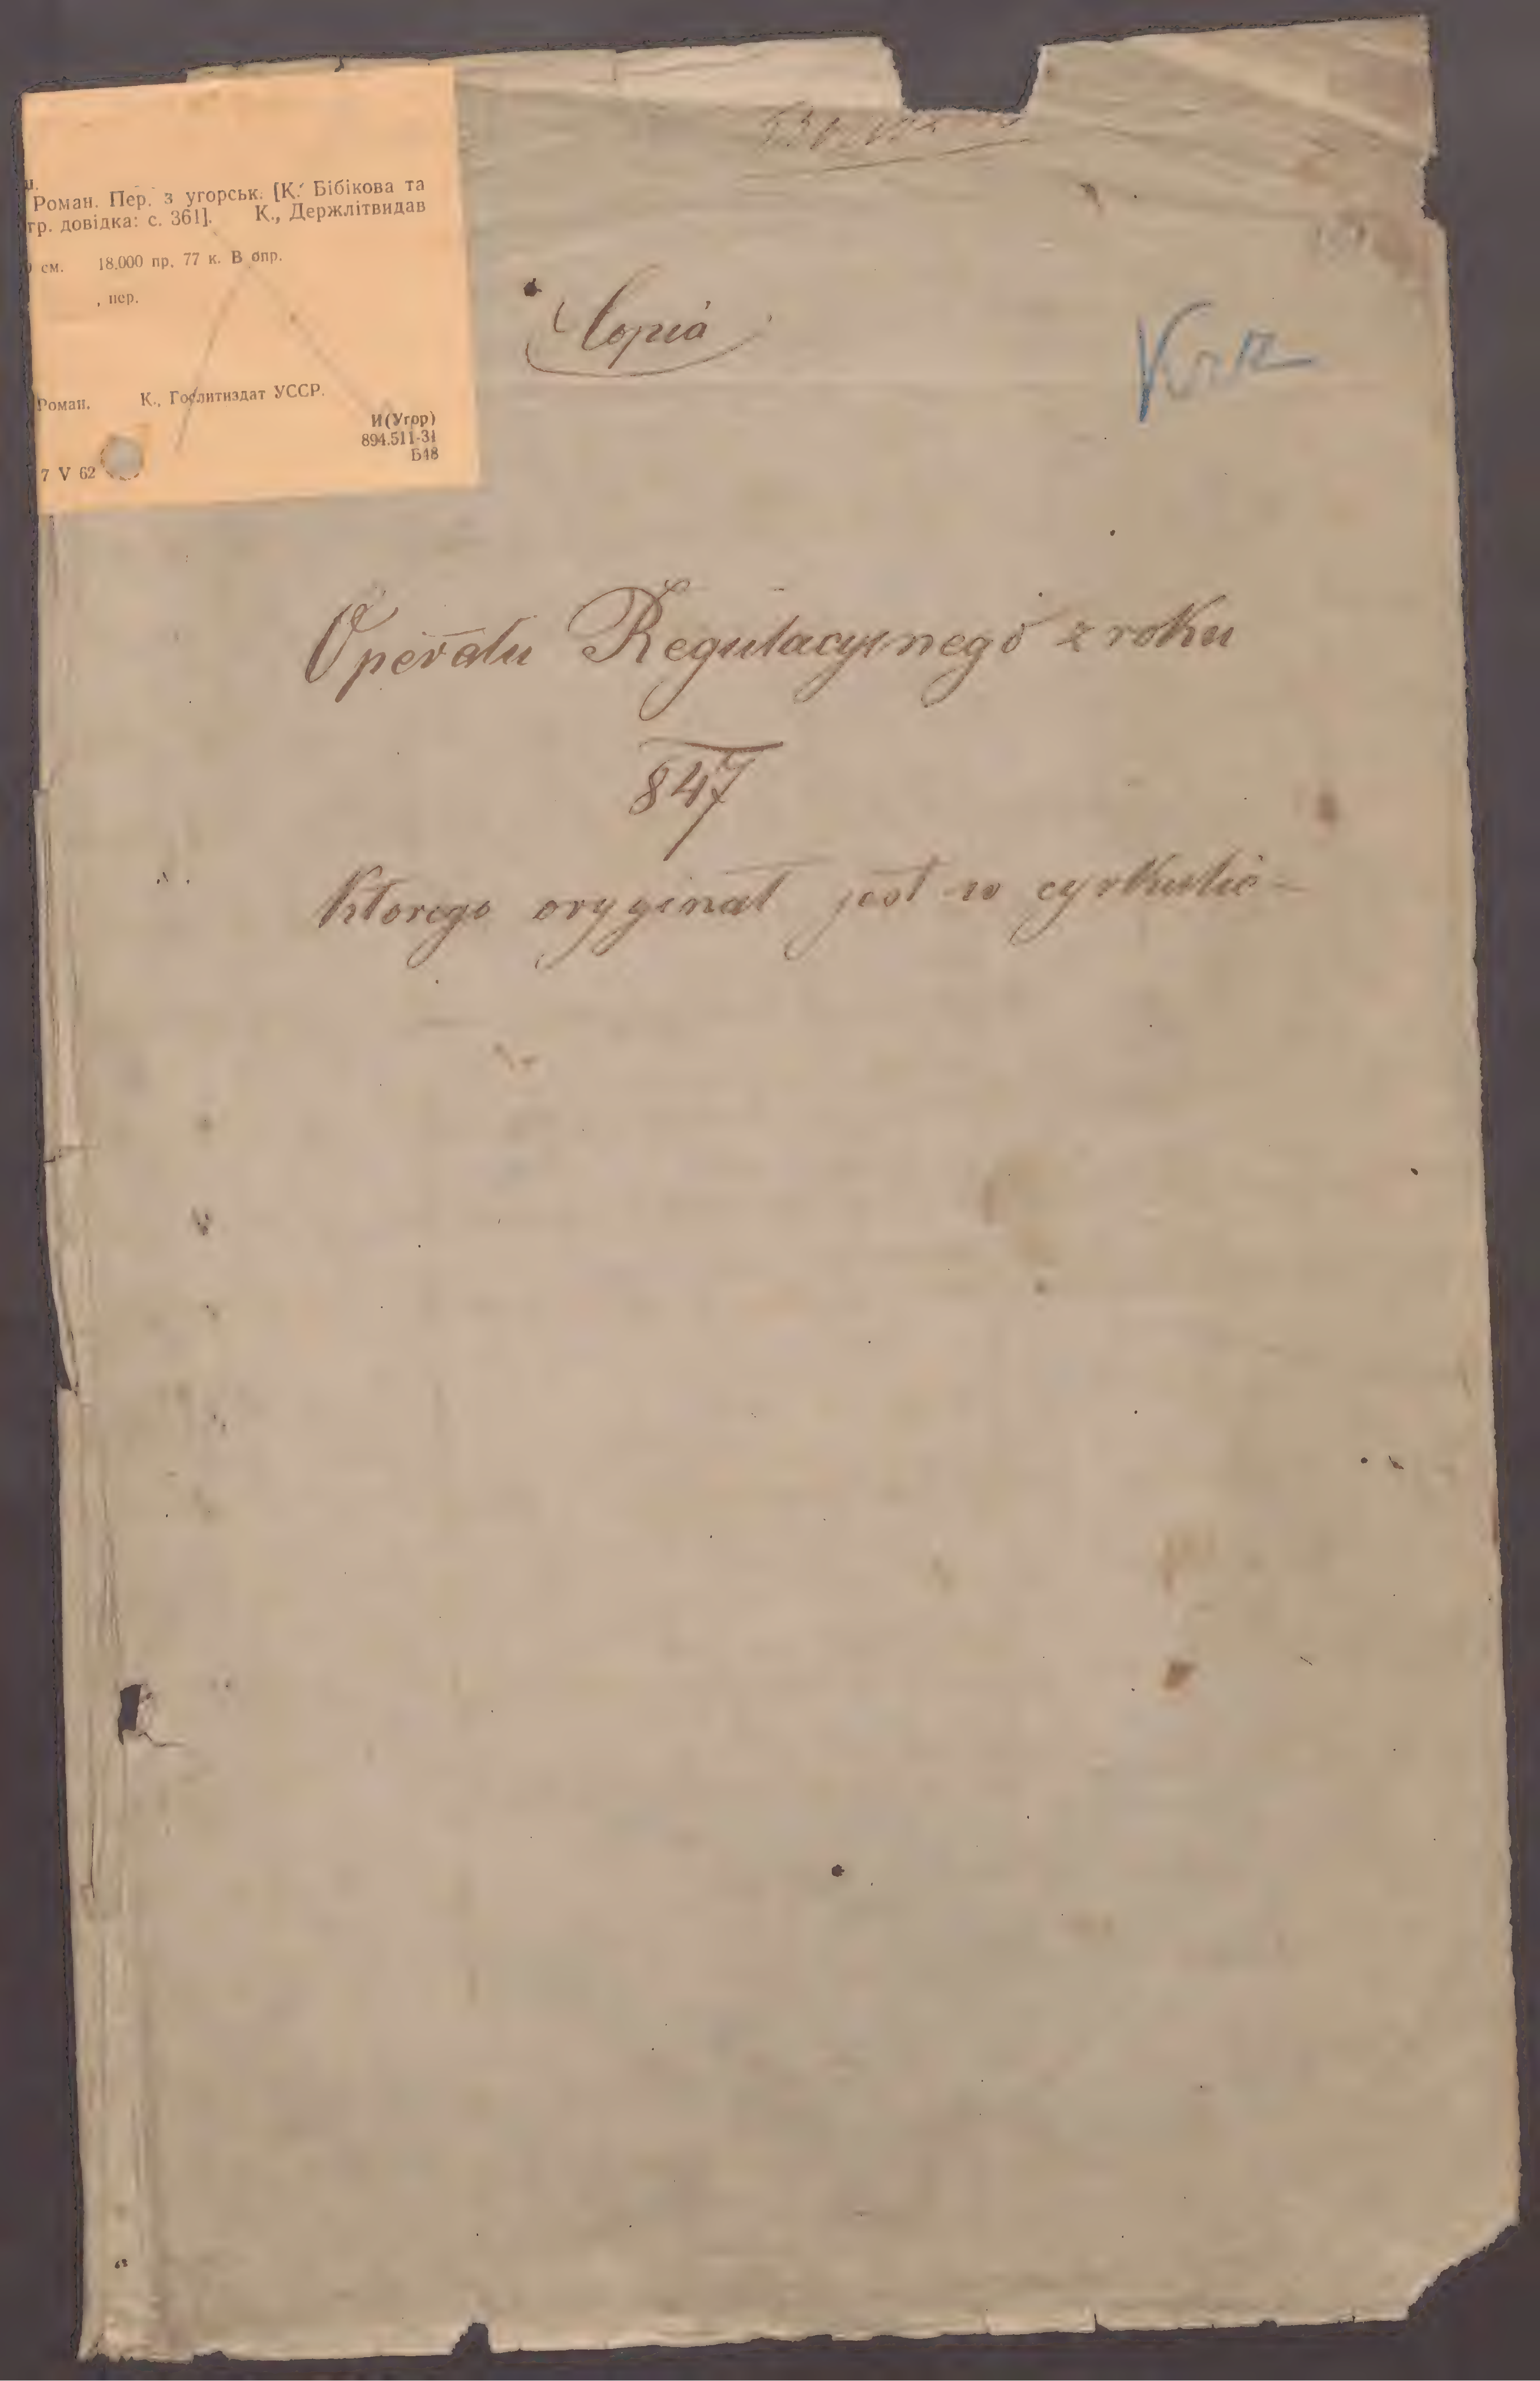 Роман. Пер. з угорськ. [К. Бібікова та
гр. довідка: с. 361]. К., Держлітвидав
см. 18.000 пр. 77 к. В опр.
, пер.
Роман. К., Гослитиздат УССР.
И(Угор)
894.511-31
Б48
7 V 62
Copia
Operatu Regulacyjnego z roku
847
Ktorego oryginał jest w cyrkule